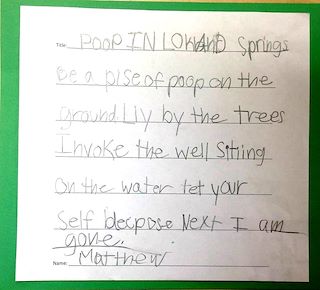 Title: POOP IN LOWAND Springs
Be a pise of poop on the
ground Liy by the trees
Invoke the well Sitting
On the water tet your
Self decpose Next I am
gone.
Name: Matthew